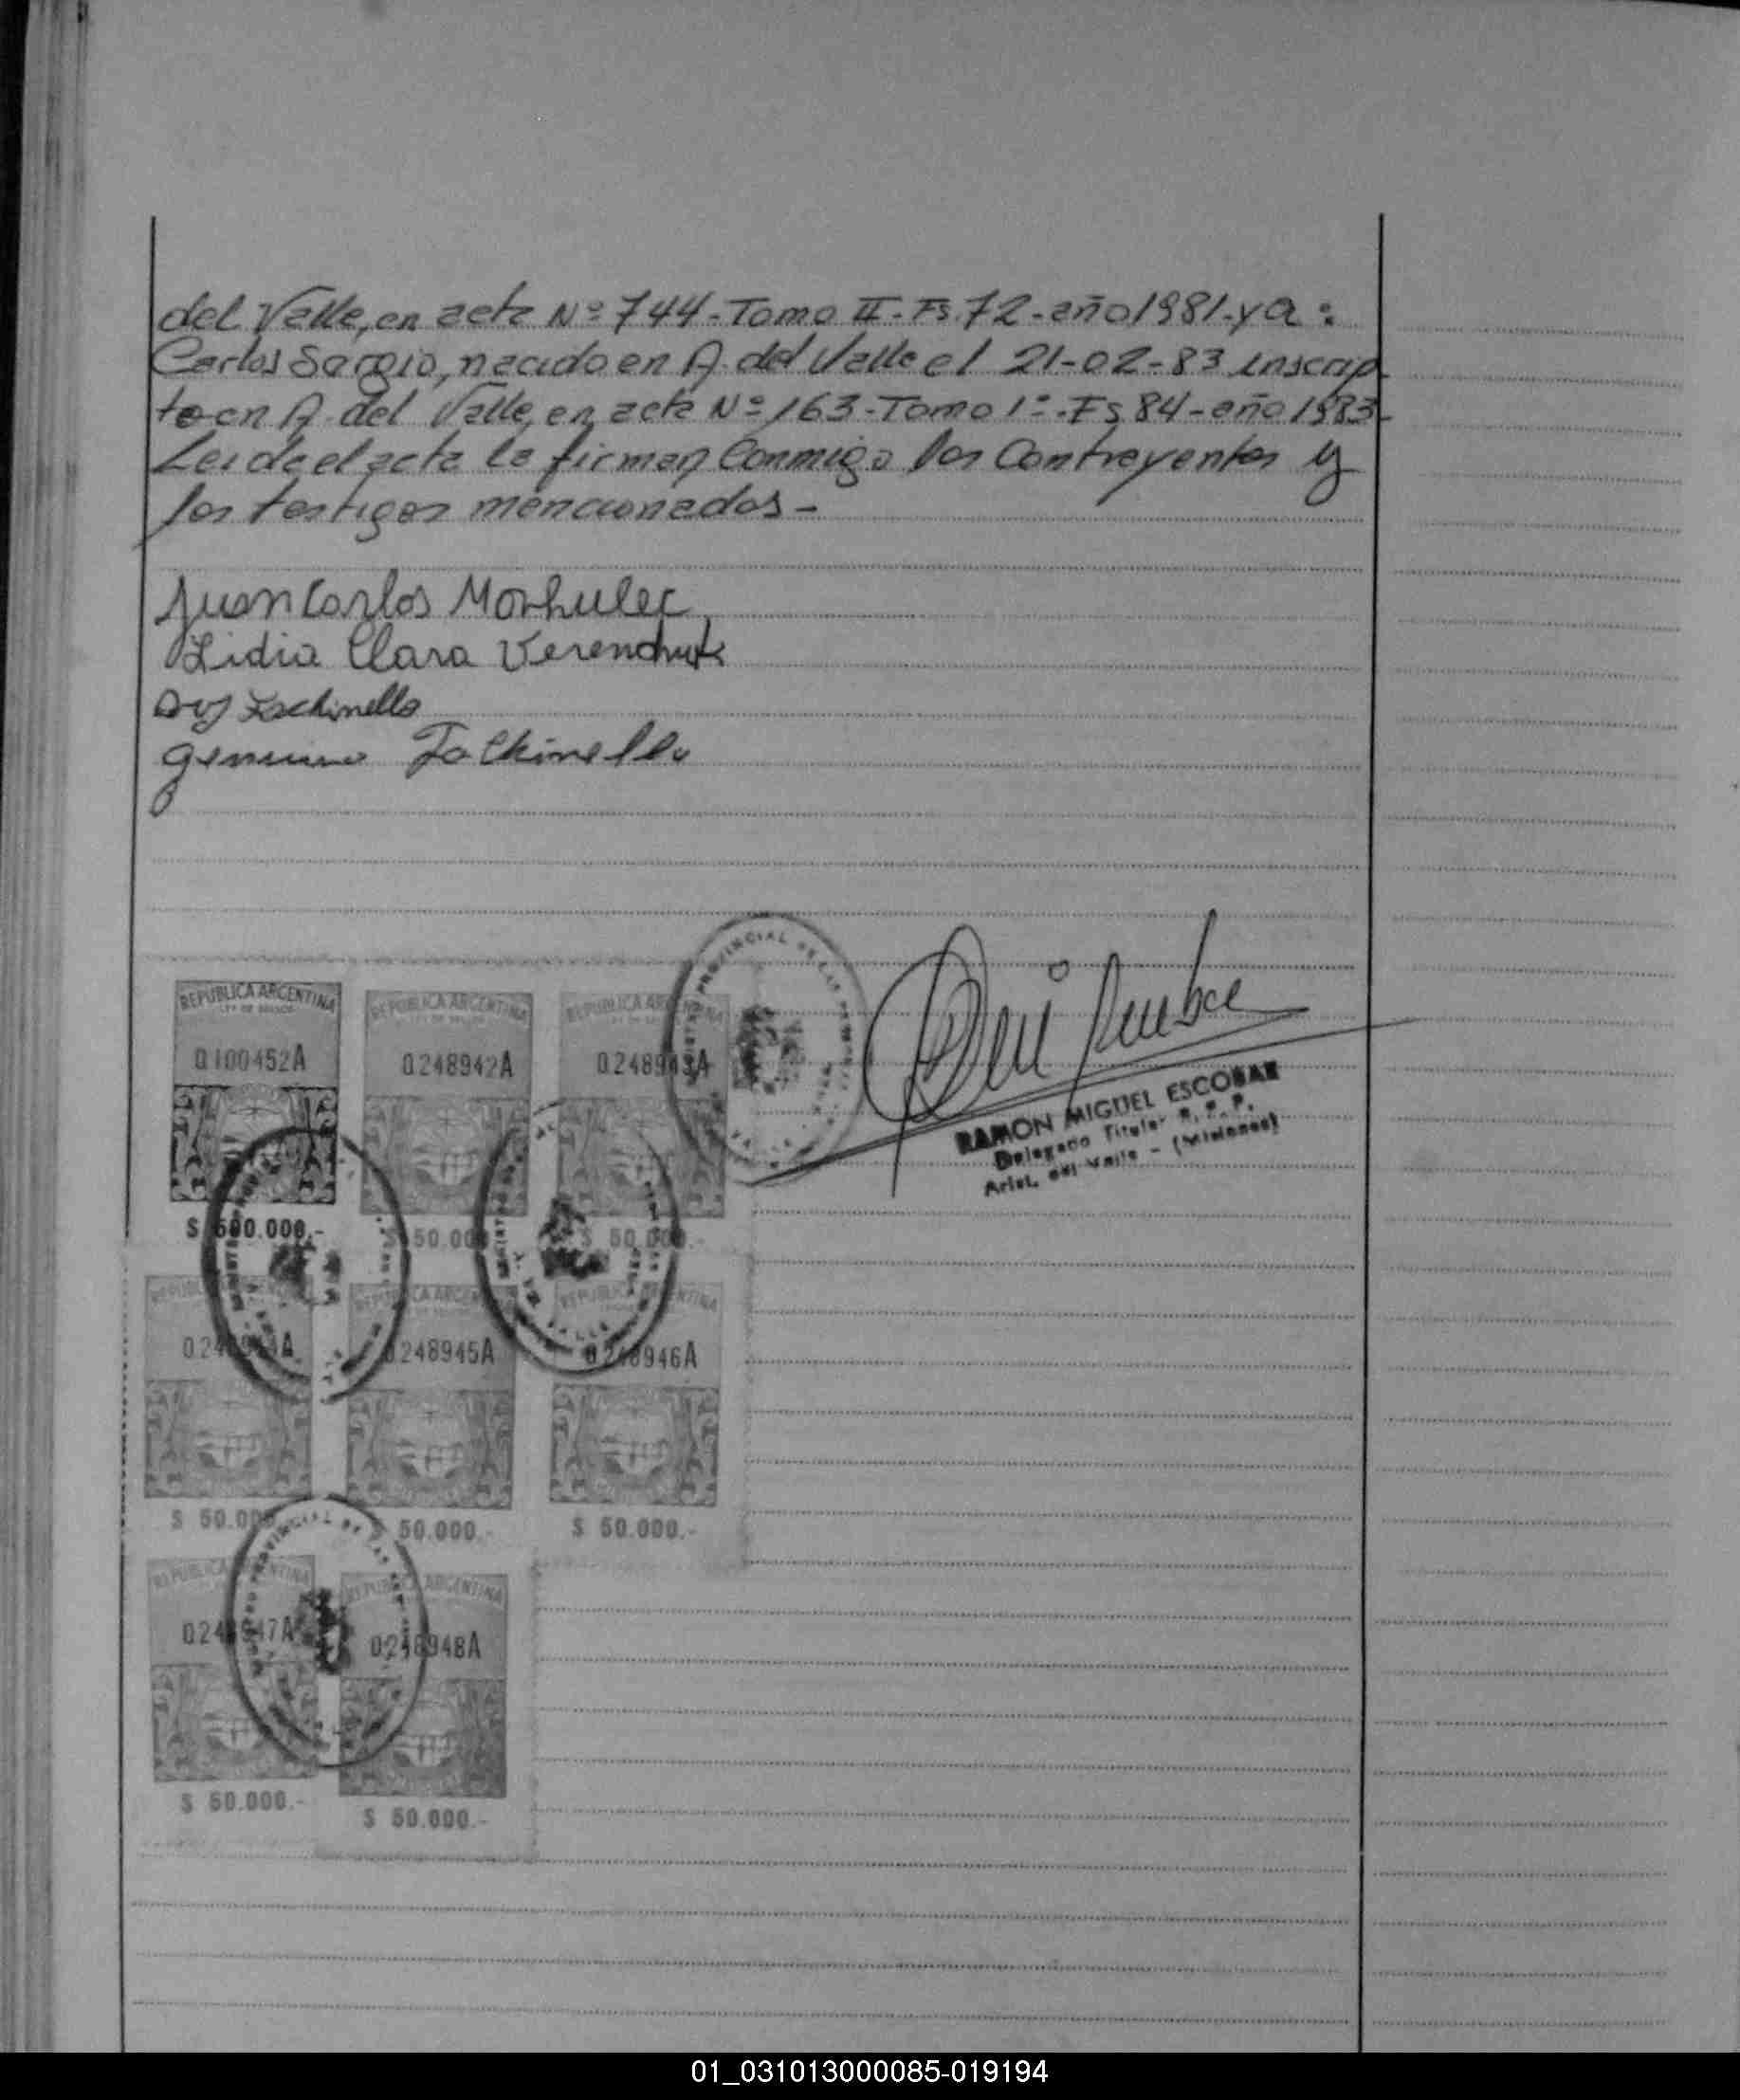 del Valle, en acta Nº 744-Tomo II-Fs.72-año 1981-y a:
Carlos Sergio, nacido en A. del Valle el 21-02-83 inscrip
to en A. del Valle, en acta Nº 163-Tomo 1º-Fs 84-año 1983-
Leida el acta la firman Conmigo los Contrayentes y
los testigos mencionados-
Juan Carlos Morhulec
Lidia Clara Verenchuk
Genuino
REPUBLICA ARGENTINA
REPUBLICA ARGENTINA
REPUBLICA ARGENTINA
0.100452A
0.248942A
0.248943A
PROVINCIAL DE LAS
RAMON MIGUEL ESCOBAR
Delegado Titular R. P. P.
Arist. del Valle - (Misiones)
$ 500.000.-
$ 50.000.-
$ 50.000.-
REPUBLICA ARGENTINA
REPUBLICA ARGENTINA
0.248945A
0.248946A
$ 50.000.-
$ 50.000.-
$ 50.000.-
REPUBLICA ARGENTINA
REPUBLICA ARGENTINA
0.248947A
0.248948A
$ 50.000.-
$ 50.000.-
01_031013000085-019194